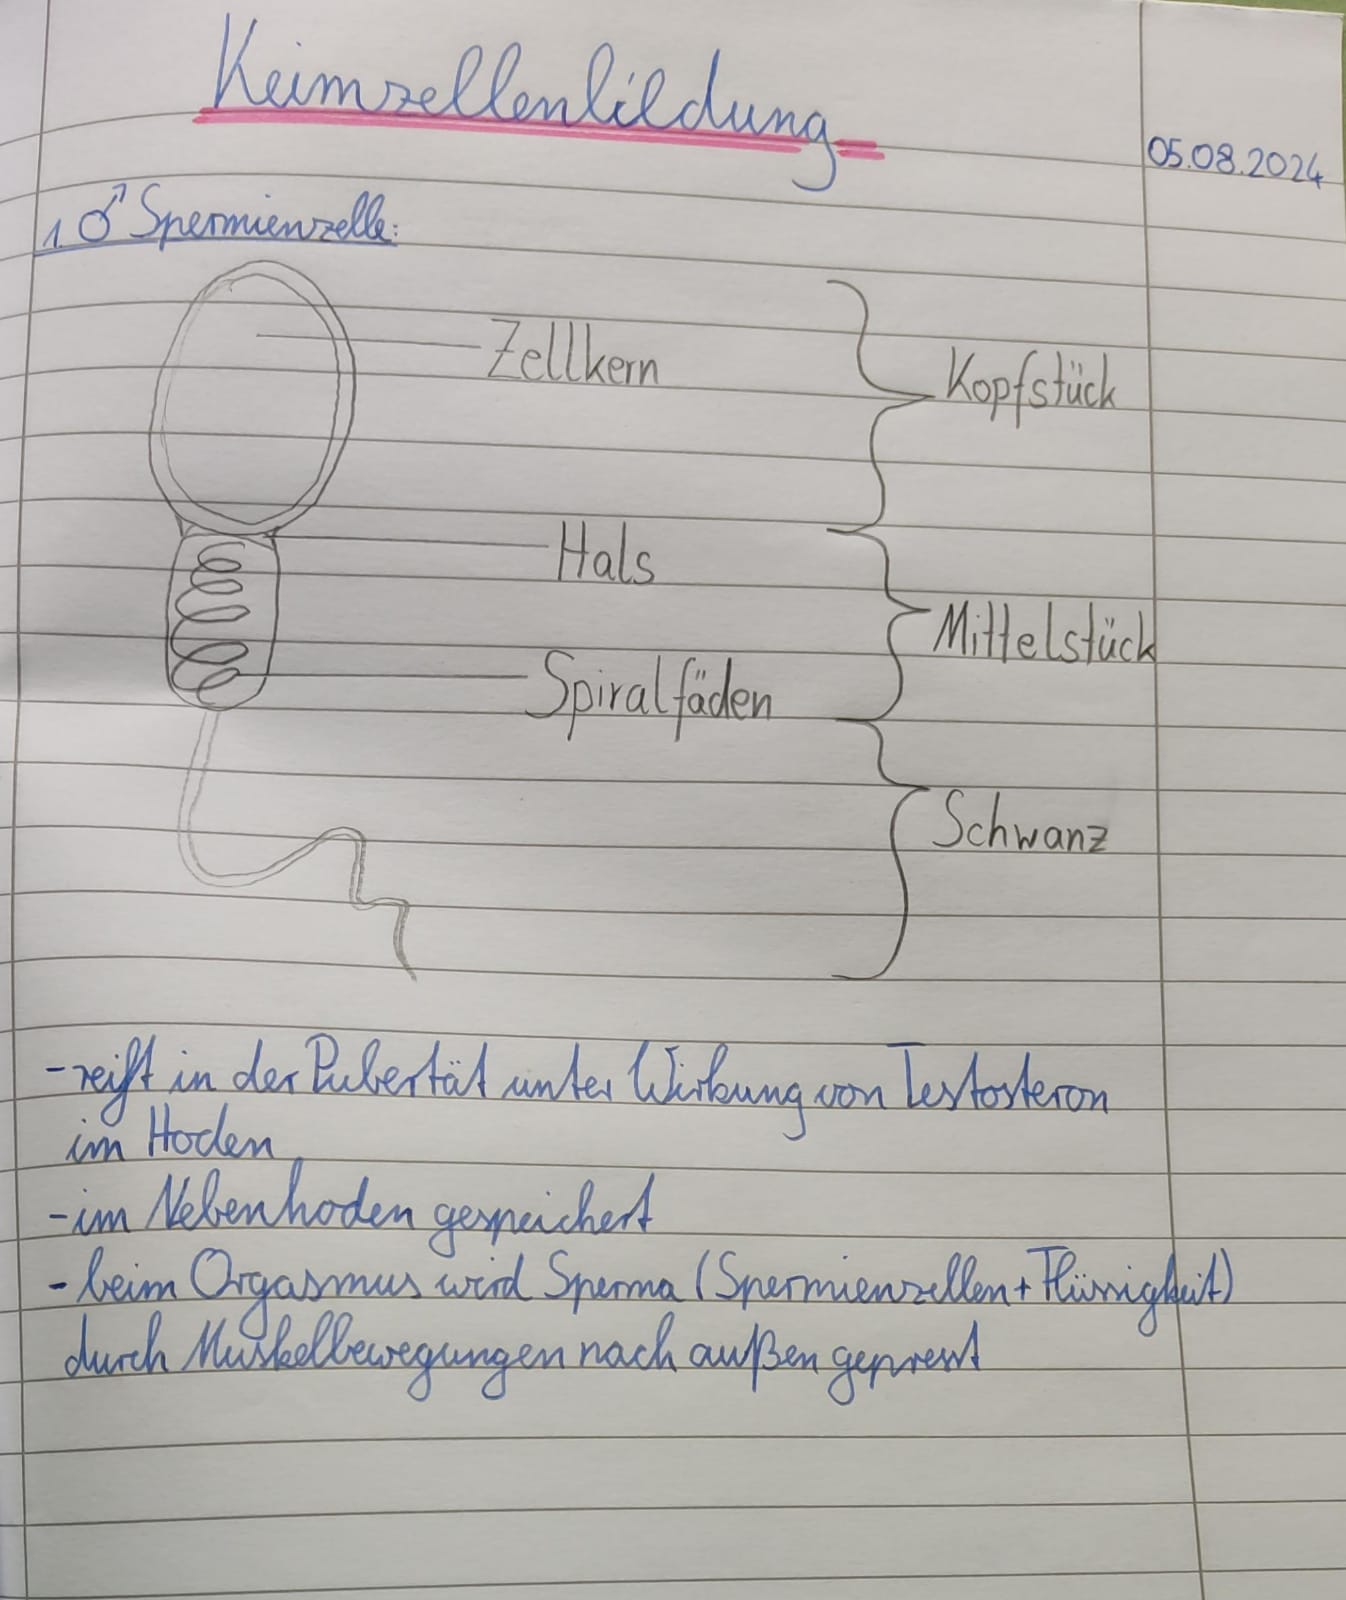 Keimzellenbildung
05.08.2024
1. ♂ Spermienzelle:
Zellkern
Kopfstück
Hals
Mittelstück
Spiralfäden
Schwanz
- reift in der Pubertät unter Wirkung von Testosteron
im Hoden
- im Nebenhoden gespeichert
- beim Orgasmus wird Sperma (Spermienzellen + Flüssigkeit)
durch Muskelbewegungen nach außen gepresst